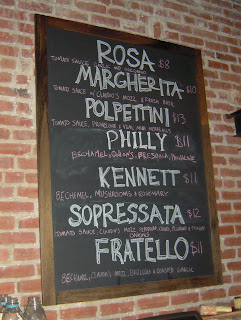 ROSA $8
TOMATO SAUCE, GARLIC AND
MARGHERITA $10
TOMATO SAUCE W/ CLAUDIO'S MOZZ. & FRESH BASIL
POLPETTINI $13
TOMATO SAUCE, PROVOLONE & VEAL MINI MEATBALLS
PHILLY $11
BECHAMEL, ONIONS, BRESAOLA, PROVOLONE
KENNETT $11
BECHEMEL, MUSHROOMS & ROSEMARY
SOPRESSATA $12
TOMATO SAUCE, CLAUDIO'S MOZZ,
ONIONS
FRATELLO $11
BECHAMEL, CLAUDIO'S MOZZ, BROCCOLI & ROASTED GARLIC